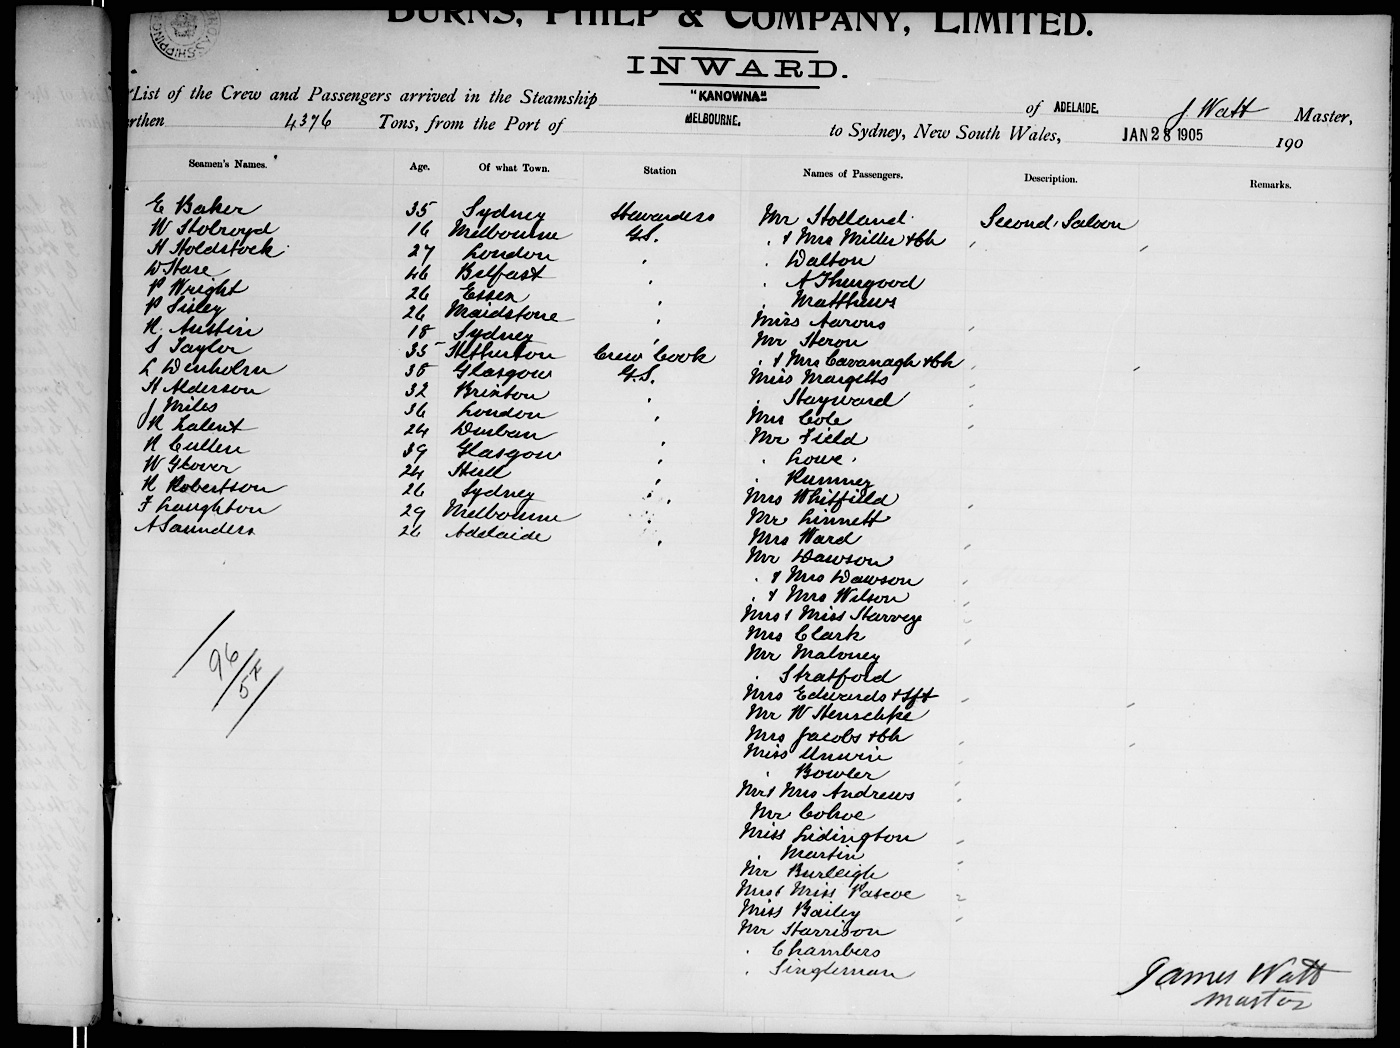 BURNS, PHILP & COMPANY, LIMITED.
INWARD.
List of the Crew and Passengers arrived in the Steamship "KANOWNA" of ADELAIDE, J Watt Master,
rthen 4376 Tons, from the Port of MELBOURNE. to Sydney, New South Wales, JAN 28 1905 190
Seamen's Names. Age. Of what Town. Station Names of Passengers. Description. Remarks.
E Baker 35 Sydney Stewardess Mr Holland Second Saloon
W Holroyd 16 Melbourne G.S. " & Mrs Miller & ch
H Holdstock 27 London " Dalton
D Hare 46 Belfast " A Thurgood
P Wright 26 Essex Matthews
P Sisley 26 Maidstone Miss Aarons
R. Austin 18 Sydney Mr Heron
S Taylor 35 Hetherton Crew Cook " & Mrs Cavanagh & ch
L Denholm 38 Glasgow G.S. Miss Margetts
H Alderson 32 Brixton " Hayward
J Miles 36 London Mrs Cole
R Lalent 24 Durban Mr Field
R Cullen 39 Glasgow " Lowe
W Glover 24 Hull " Rumney
R Robertson 26 Sydney Mrs Whitfield
F Laughton 29 Melbourne Mr Linnett
A Saunders 26 Adelaide Mrs Ward
Mr Dawson
" & Mrs Dawson
" & Mrs Wilson
Mrs & Miss Harvey
Mrs Clark
Mr Maloney
" Stratford
Mrs Edwards & Inft
Mr W Henschke
Mrs Jacobs & ch
Miss Unwin
" Bowler
Mr & Mrs Andrews
Mr Cohoe
Miss Lidington
" Martin
Mr Burleigh
Mrs & Miss Pascoe
Miss Bailey
Mr Harrison
" Chambers
" Singleman
96/57
James Watt
Master